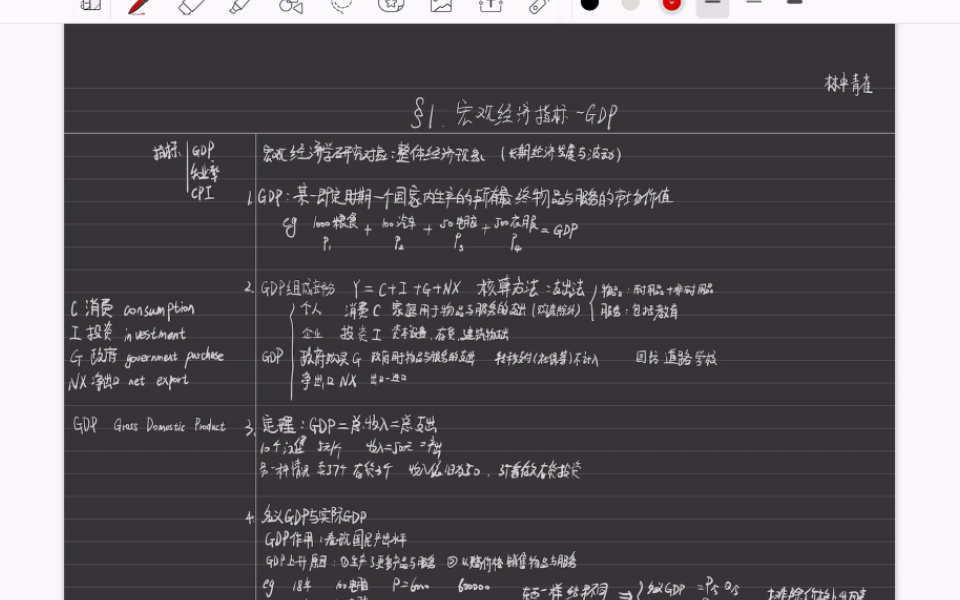 林中青雀
§1. 宏观经济指标-GDP
指标 GDP
失业率
CPI
宏观经济学研究对象:整体经济现象 (长期经济发展与波动)
1. GDP:某一既定时期一个国家内生产的所有最终物品与服务的市场价值
eg 1000粮食 + 100汽车 + 50电脑 + 500衣服 = GDP
P₁ P₂ P₃ P₄
2. GDP组成部分 Y=C+I+G+NX 核算方法:支出法 物品:耐用品+非耐用品
服务:包括教育
C 消费 consumption
I 投资 investment
G 政府 government purchase
NX 净出口 net export
个人 消费 C 家庭用于物品与服务的支出
企业 投资 I 资本设备,存货,建筑物支出
GDP 政府购买 G 政府用于物品与服务的支出 转移支付(社保等)不计入 国防 道路 学校
净出口 NX 出口-进口
GDP Gross Domestic Product
3. 定理:GDP=总收入=总支出
10个汉堡 5元/个 收入=50元=支出
另一种情况 卖37个 存货3个 收入依旧为50,
4. 名义GDP与实际GDP
GDP作用:衡量国民产出水平
GDP上升原因:①生产了更多产品与服务 ②以更高价格销售物品与服务
eg 18年 100电脑 P=6000 600000
⇒ 名义GDP =